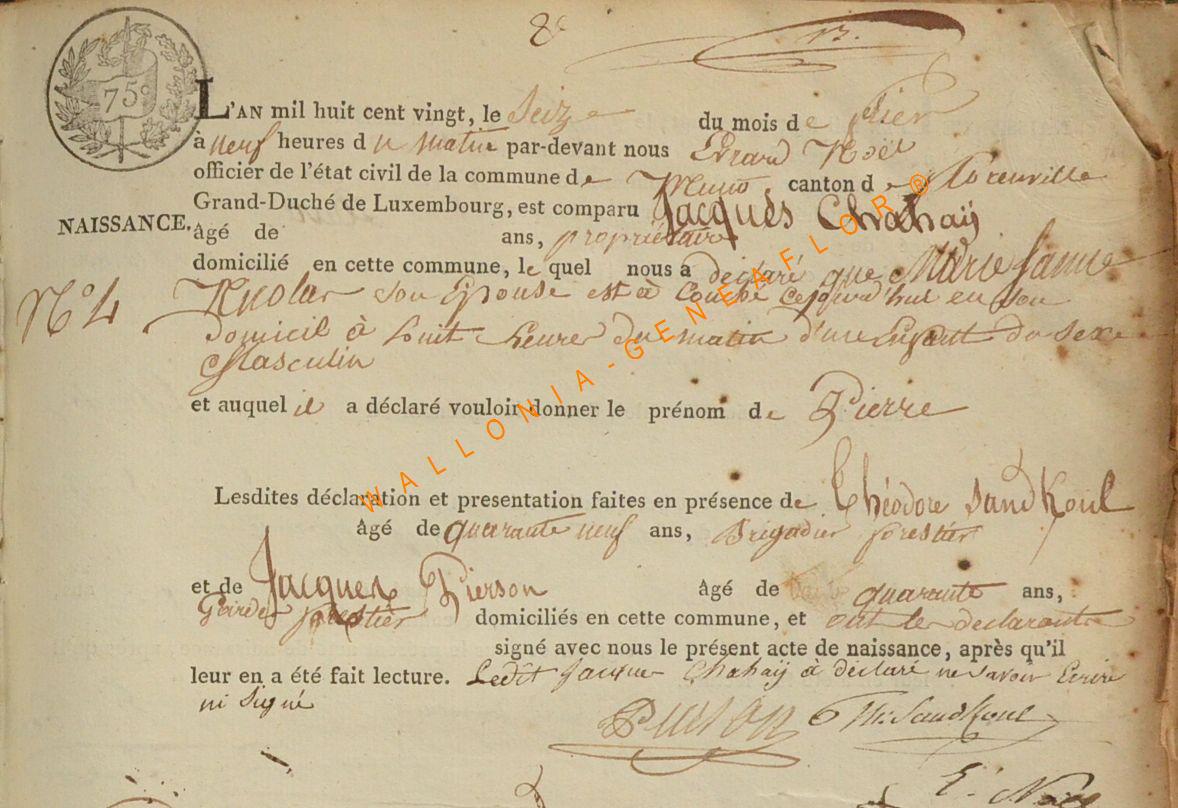 8
13.
75c
L'AN mil huit cent vingt, le Seize du mois de
à neuf heures du matin par-devant nous Evrard Noël
officier de l'état civil de la commune de Muno, canton de florenville
Grand-Duché de Luxembourg, est comparu Jacques Chahaÿ
NAISSANCE.
âgé de ans, propriétaire
domicilié en cette commune, le quel nous a déclaré que Marie Janne
N° 4 Nicolas son Epouse est à Couché cejourd'hui en son
domicil à huit heures du matin d'une Enfant du sexe
Masculin
et auquel il a déclaré vouloir donner le prénom de Pierre
WALLONIA-GENEAFLOR®
Lesdites déclaration et presentation faites en présence de Théodore Sandkoul
âgé de quarante neuf ans, Brigadier forestier
et de Jacques Pierson âgé de quarante ans,
Garde forestier domiciliés en cette commune, et ont les declarants
signé avec nous le présent acte de naissance, après qu'il
leur en a été fait lecture. Ledit Jacques Chahaÿ à déclaré ne savoir Ecrire
ni signé
Pierson Th: Sandkoul
E. Noël